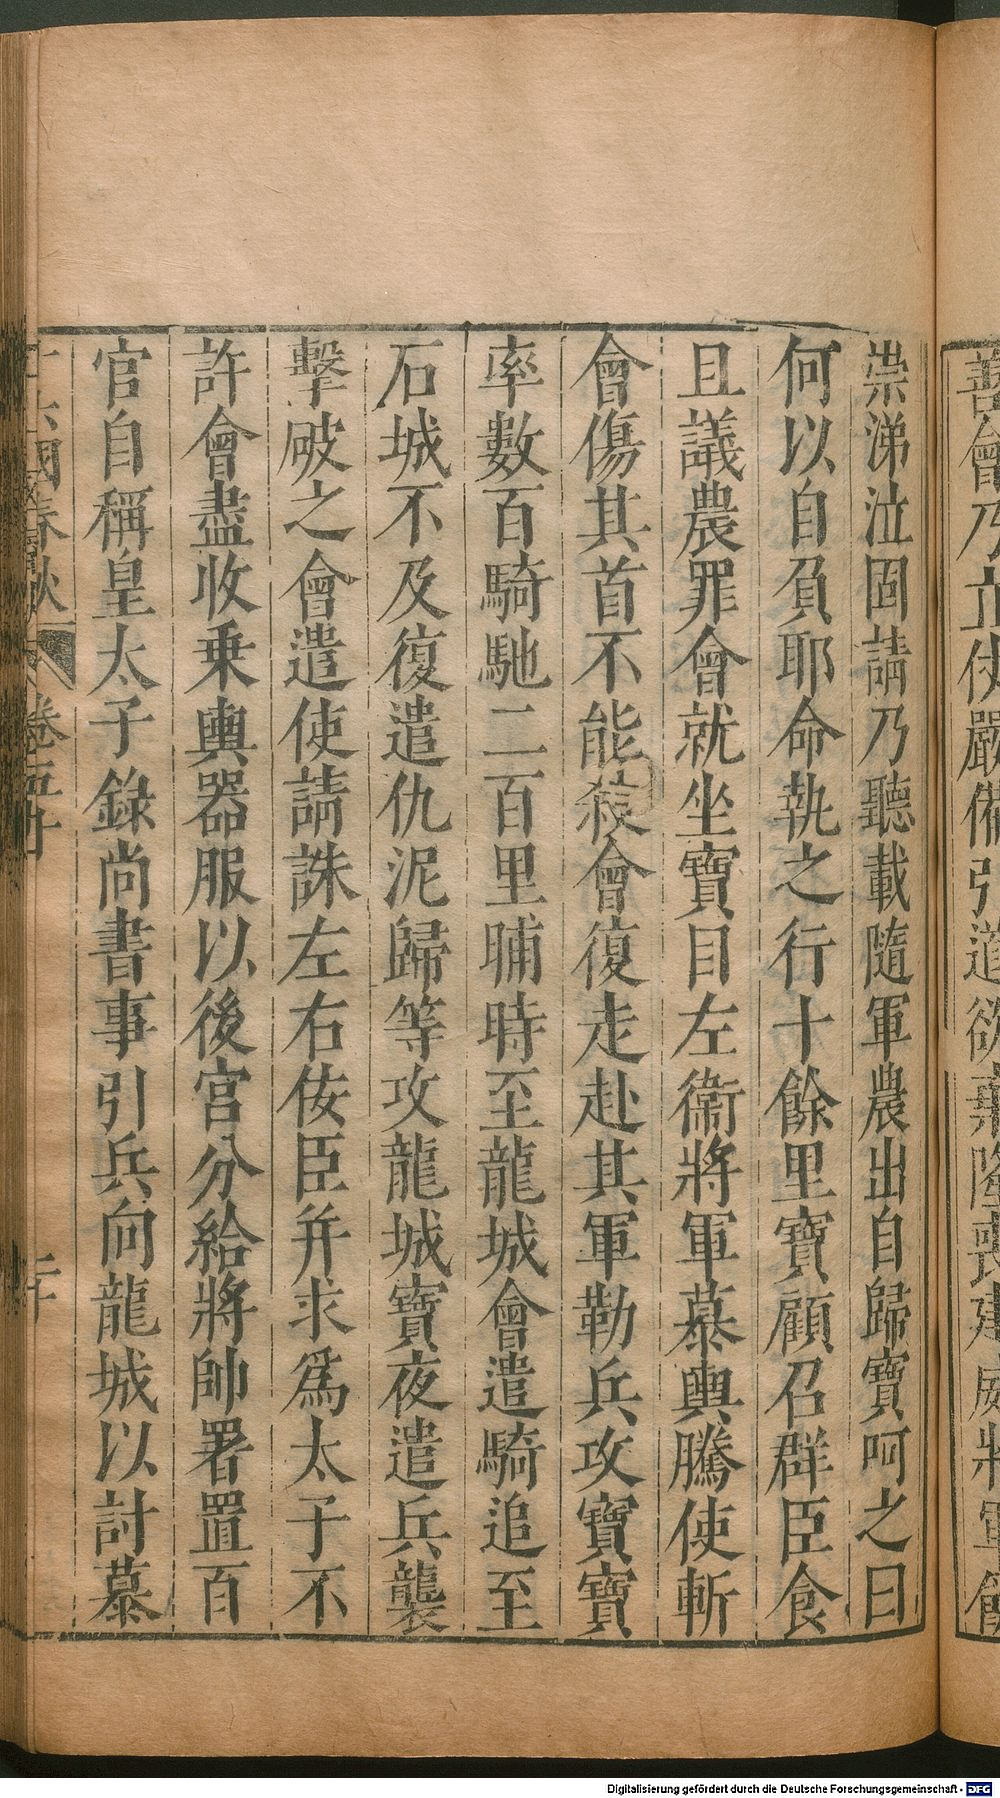 善會乃立仗嚴備引道欲棄隆喪建威將軍餘
崇涕泣固請乃聽載隨軍農出自歸寶呵之曰
何以自負耶命執之行十餘里寶顧召群臣食
且議農罪會就坐寶目左衞將軍慕輿騰使斬
會傷其首不能殺會復走赴其軍勒兵攻寶寶
率數百騎馳二百里晡時至龍城會遣騎追至
石城不及復遣仇泥歸等攻龍城寶夜遣兵襲
擊破之會遣使請誅左右佞臣并求爲太子不
許會盡收乗輿器服以後宮分給將帥署置百
官自稱皇太子錄尚書事引兵向龍城以討慕
十六國春秋 卷五十 二十
Digitalisierung gefördert durch die Deutsche Forschungsgemeinschaft - DFG